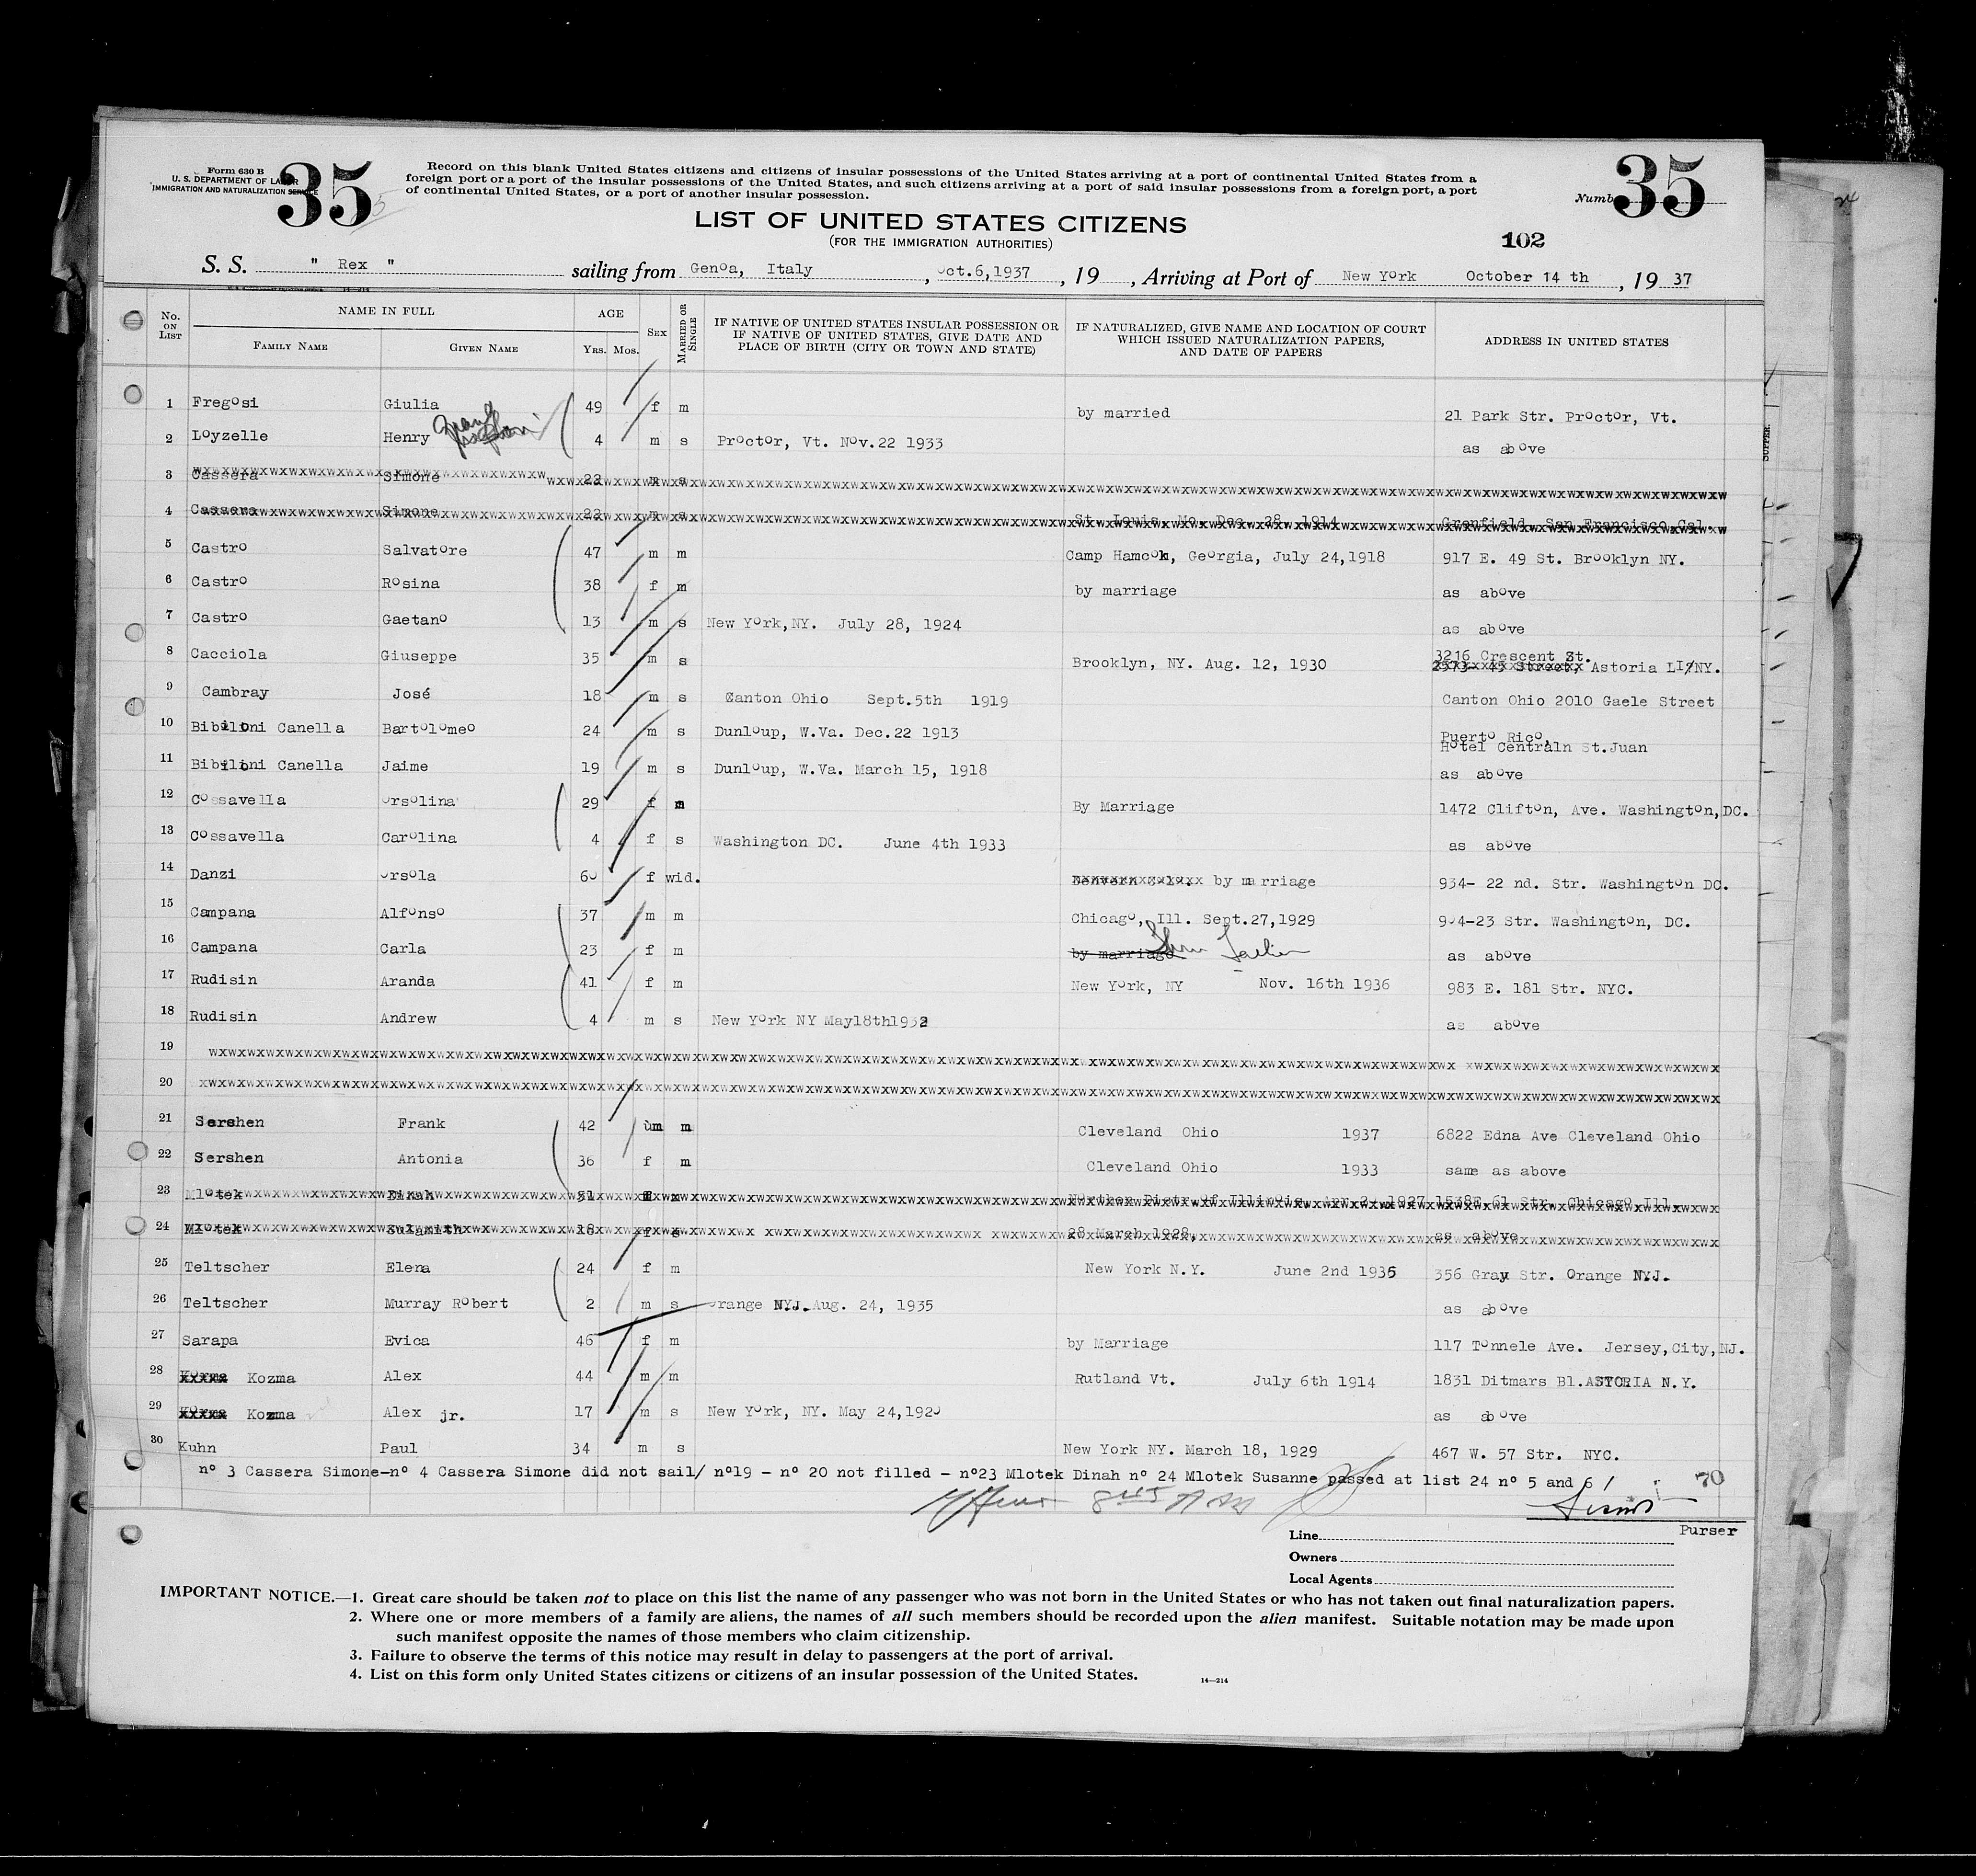 Form 630 B
U. S. DEPARTMENT OF LABOR
IMMIGRATION AND NATURALIZATION SERVICE
35
Record on this blank United States citizens and citizens of insular possessions of the United States arriving at a port of continental United States from a
foreign port or a port of the insular possessions of the United States, and such citizens arriving at a port of said insular possessions from a foreign port, a port
of continental United States, or a port of another insular possession.
35
LIST OF UNITED STATES CITIZENS
(FOR THE IMMIGRATION AUTHORITIES)
102
S. S. " Rex " sailing from Genoa, Italy , Oct.6,1937 , 19 , Arriving at Port of New York October 14 th , 19 37
No. ON LIST NAME IN FULL AGE SEX MARRIED OR SINGLE IF NATIVE OF UNITED STATES INSULAR POSSESSION OR IF NATIVE OF UNITED STATES, GIVE DATE AND PLACE OF BIRTH (CITY OR TOWN AND STATE) IF NATURALIZED, GIVE NAME AND LOCATION OF COURT WHICH ISSUED NATURALIZATION PAPERS, AND DATE OF PAPERS ADDRESS IN UNITED STATES
FAMILY NAME GIVEN NAME Yrs. Mos.
1 Fregosi Giulia 49 f m by married 21 Park Str. Proctor, Vt.
2 Loyzelle Henry 4 m s Proctor, Vt. Nov.22 1933 as above
3 Cassera Simone 22 m s
4 Cassera Simone 22 m s St. Louis, Mo. Dec. 28, 1914 Grenfield, San Francisco,Cal.
5 Castro Salvatore 47 m m Camp Hamcok, Georgia, July 24,1918 917 E. 49 St. Brooklyn NY.
6 Castro Rosina 38 f m by marriage as above
7 Castro Gaetano 13 m s New York,NY. July 28, 1924 as above
8 Cacciola Giuseppe 35 m s Brooklyn, NY. Aug. 12, 1930 3216 Crescent St.
2573- 45 Street, Astoria LI/NY.
9 Cambray José 18 m s Canton Ohio Sept.5th 1919 Canton Ohio 2010 Gaele Street
10 Bibiloni Canella Bartolomeo 24 m s Dunloup, W.Va. Dec.22 1913 Puerto Rico,
Hotel Centraln St.Juan
11 Bibiloni Canella Jaime 19 m s Dunloup, W.Va. March 15, 1918 as above
12 Cossavella Orsolina 29 f m By Marriage 1472 Clifton, Ave. Washington,DC.
13 Cossavella Carolina 4 f s Washington DC. June 4th 1933 as above
14 Danzi Orsola 60 f wid. by marriage 934- 22 nd. Str. Washington DC.
15 Campana Alfonso 37 m m Chicago, Ill. Sept.27,1929 904-23 Str. Washington, DC.
16 Campana Carla 23 f m by marriage as above
17 Rudisin Aranda 41 f m New York, NY Nov. 16th 1936 983 E. 181 Str. NYC.
18 Rudisin Andrew 4 m s New York NY May18th1932 as above
19
20
21 Sershen Frank 42 m m Cleveland Ohio 1937 6822 Edna Ave Cleveland Ohio
22 Sershen Antonia 36 f m Cleveland Ohio 1933 same as above
23 Mlotek Dinah 31 f Northen Distr.of Illinois, Apr.2, 1927 1538E 61 Str. Chicago Ill.
24 Mlotek Sulamith 18 f s 28 March 1928, as above
25 Teltscher Elena 24 f m New York N.Y. June 2nd 1936 356 Gray Str. Orange NJ.
26 Teltscher Murray Robert 2 m s Orange NJ. Aug. 24, 1935 as above
27 Sarapa Evica 46 f m by Marriage 117 Tonnele Ave. Jersey,City,NJ.
28 Korma Kozma Alex 44 m m Rutland Vt. July 6th 1914 1831 Ditmars Bl.ASTORIA N.Y.
29 Korma Kozma Alex jr. 17 m s New York, NY. May 24,1920 as above
30 Kuhn Paul 34 m s New York NY. March 18, 1929 467 W. 57 Str. NYC.
n° 3 Cassera Simone-n° 4 Cassera Simone did not sail/ n°19 - n° 20 not filled - n°23 Mlotek Dinah n° 24 Mlotek Susanne passed at list 24 n° 5 and 6 /
70
Purser
Line
Owners
Local Agents
IMPORTANT NOTICE.—1. Great care should be taken not to place on this list the name of any passenger who was not born in the United States or who has not taken out final naturalization papers.
2. Where one or more members of a family are aliens, the names of all such members should be recorded upon the alien manifest. Suitable notation may be made upon
such manifest opposite the names of those members who claim citizenship.
3. Failure to observe the terms of this notice may result in delay to passengers at the port of arrival.
4. List on this form only United States citizens or citizens of an insular possession of the United States.
14—214